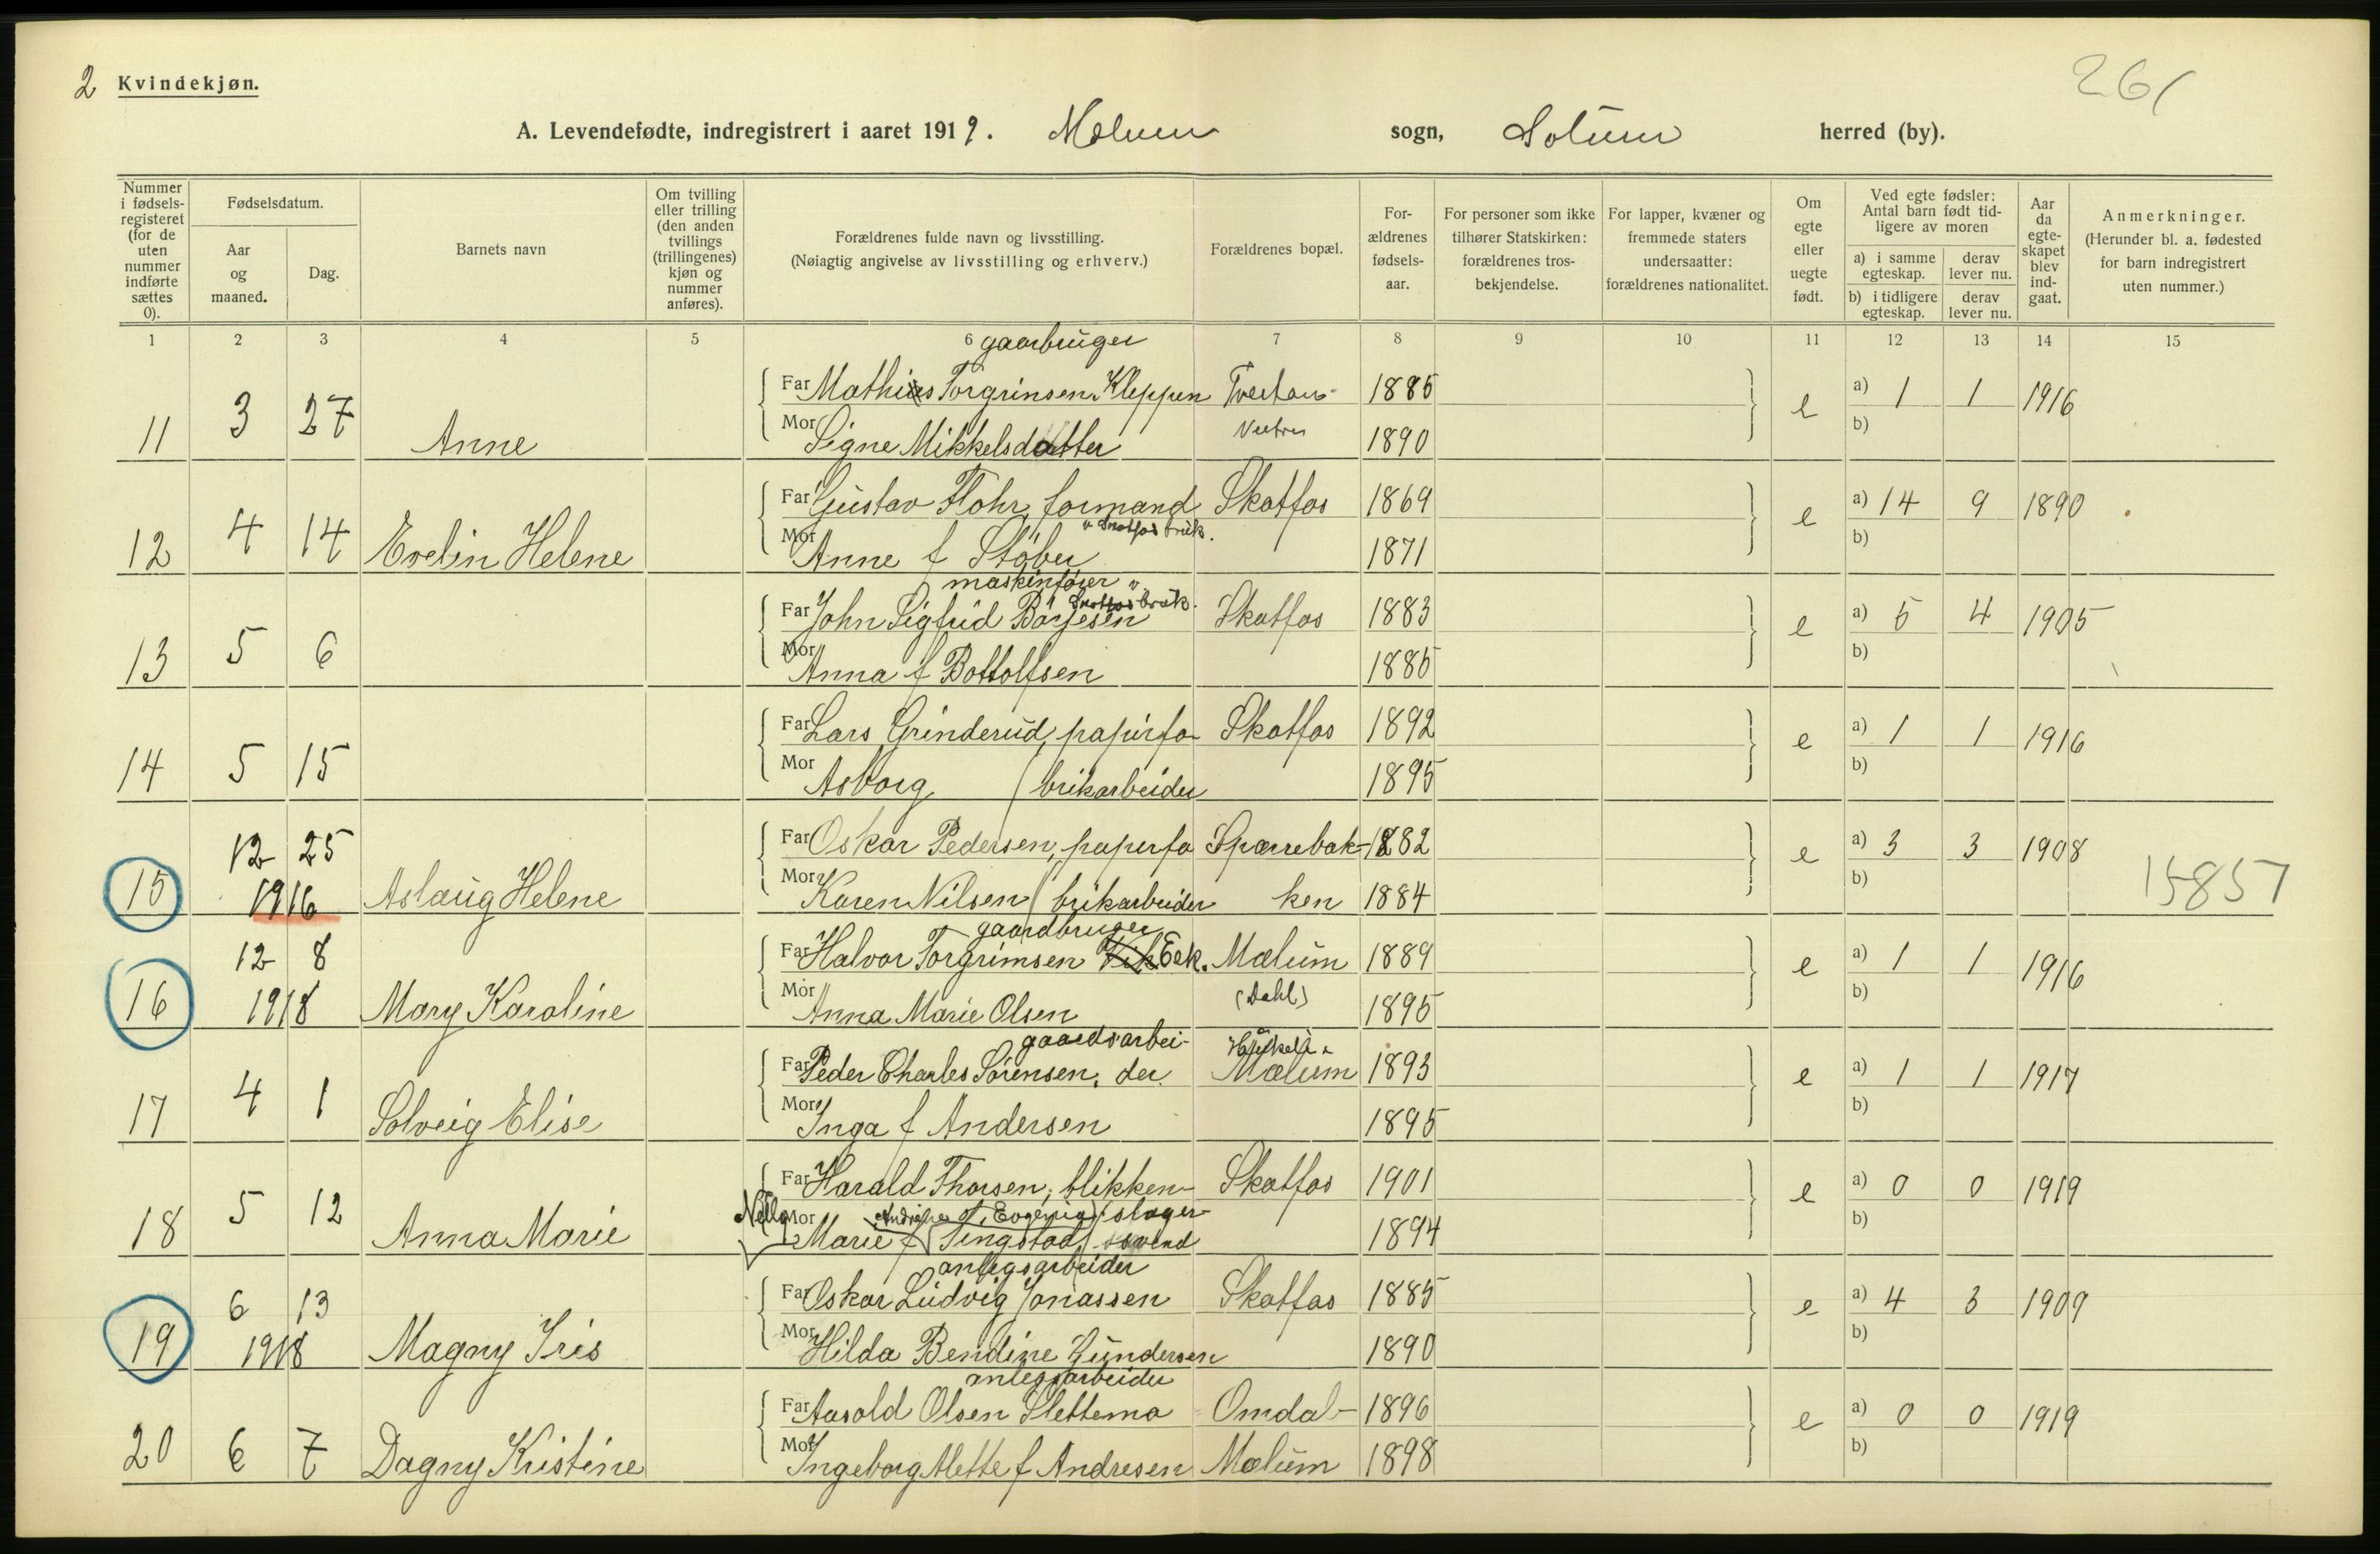 2 Kvindekjøn.
261
A. Levendefødte, indregistrert i aaret 1919. Mælum sogn, Solum herred (by).
Nummer i fødselsregisteret (for de uten nummer indførte sættes 0).
Fødselsdatum.
Aar og maaned.
Dag.
Barnets navn
Om tvilling eller trilling (den anden tvillings (trillingenes) kjøn og nummer anføres).
Forældrenes fulde navn og livsstilling.
(Nøiagtig angivelse av livsstilling og erhverv.)
Forældrenes bopæl.
For-ældrenes fødsels-aar.
For personer som ikke tilhører Statskirken: forældrenes tros-bekjendelse.
For lapper, kvæner og fremmede staters undersaatter: forældrenes nationalitet.
Om egte eller uegte født.
Ved egte fødsler: Antal barn født tid-ligere av moren
a) i samme egteskap.
derav lever nu.
b) i tidligere egteskap.
derav lever nu.
Aar da egte-skapet blev ind-gaat.
Anmerkninger.
(Herunder bl. a. fødested for barn indregistrert uten nummer.)
1 2 3 4 5 6 7 8 9 10 11 12 13 14 15
gaarbruger
11 3 27 Anne
Far Mathias Torgrinsen Kleppen 1885 e a) 1 1 1916
Mor Signe Mikkelsdatter Vestre 1890 b)
12 4 14 Evelin Helene
Far Gustav Flohr, formand Skotfos 1869 e a) 14 9 1890
" Skotfos bruk.
Mor Anne f Støber 1871 b)
maskinfører "
Skotfos bruk.
13 5 6
Far John Sigfrid Börjesen Skotfos 1883 e a) 5 4 1905
Mor Anna f Bottolfsen 1885 b)
14 5 15
Far Lars Grinderud, papirfa Skotfos 1892 e a) 1 1 1916
Mor Asborg brikarbeider 1895 b)
15 12 25 1916 Aslaug Helene
Far Oskar Pedersen, papirfa Sparrebak- 1882 e a) 3 3 1908
Mor Karen Nilsen brikarbeider ken 1884 b)
15857
gaardbruger
16 12 8 1918 Mary Karoline
Far Halvor Torgrimsen Vik Eek. Mælum 1889 e a) 1 1 1916
Mor Anna Marie Olsen (Dahl) 1895 b)
gaardsarbei-
17 4 1 Solveig Elise
Far Peder Charles Sørensen, der. Mælum 1893 e a) 1 1 1917
Mor Inga f Andersen 1895 b)
18 5 12 Anna Marie
Far Harald Thorsen, blikken- Skotfos 1901 e a) 0 0 1919
Nelly Mor slager-
Marie f Tingstad svend 1894 b)
anlegsarbeider
19 6 13 1918 Magny Iris
Far Oskar Ludvig Jonassen Skotfos 1885 e a) 4 3 1909
Mor Hilda Bendine Gundersen 1890 b)
anlegsarbeider
20 6 7 Dagny Kristine
Far Aasold Olsen Slettemo Omdal- 1896 e a) 0 0 1919
Mor Ingeborg Mette f Andresen Mælum 1898 b)